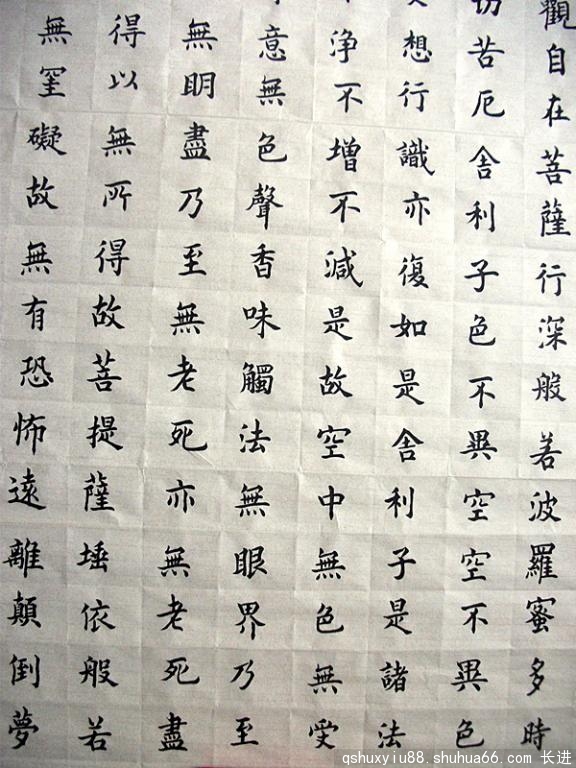 觀自在菩薩行深般若波羅蜜多時
切苦厄舍利子色不異空空不異色
想行識亦復如是舍利子是諸法
淨不增不減是故空中無色無受
意無色聲香味觸法無眼界乃至
無明盡乃至無老死亦無老死盡
得以無所得故菩提薩埵依般若
無罣礙故無有恐怖遠離顛倒夢
qshuxyiu88.shuhua66.com 长进